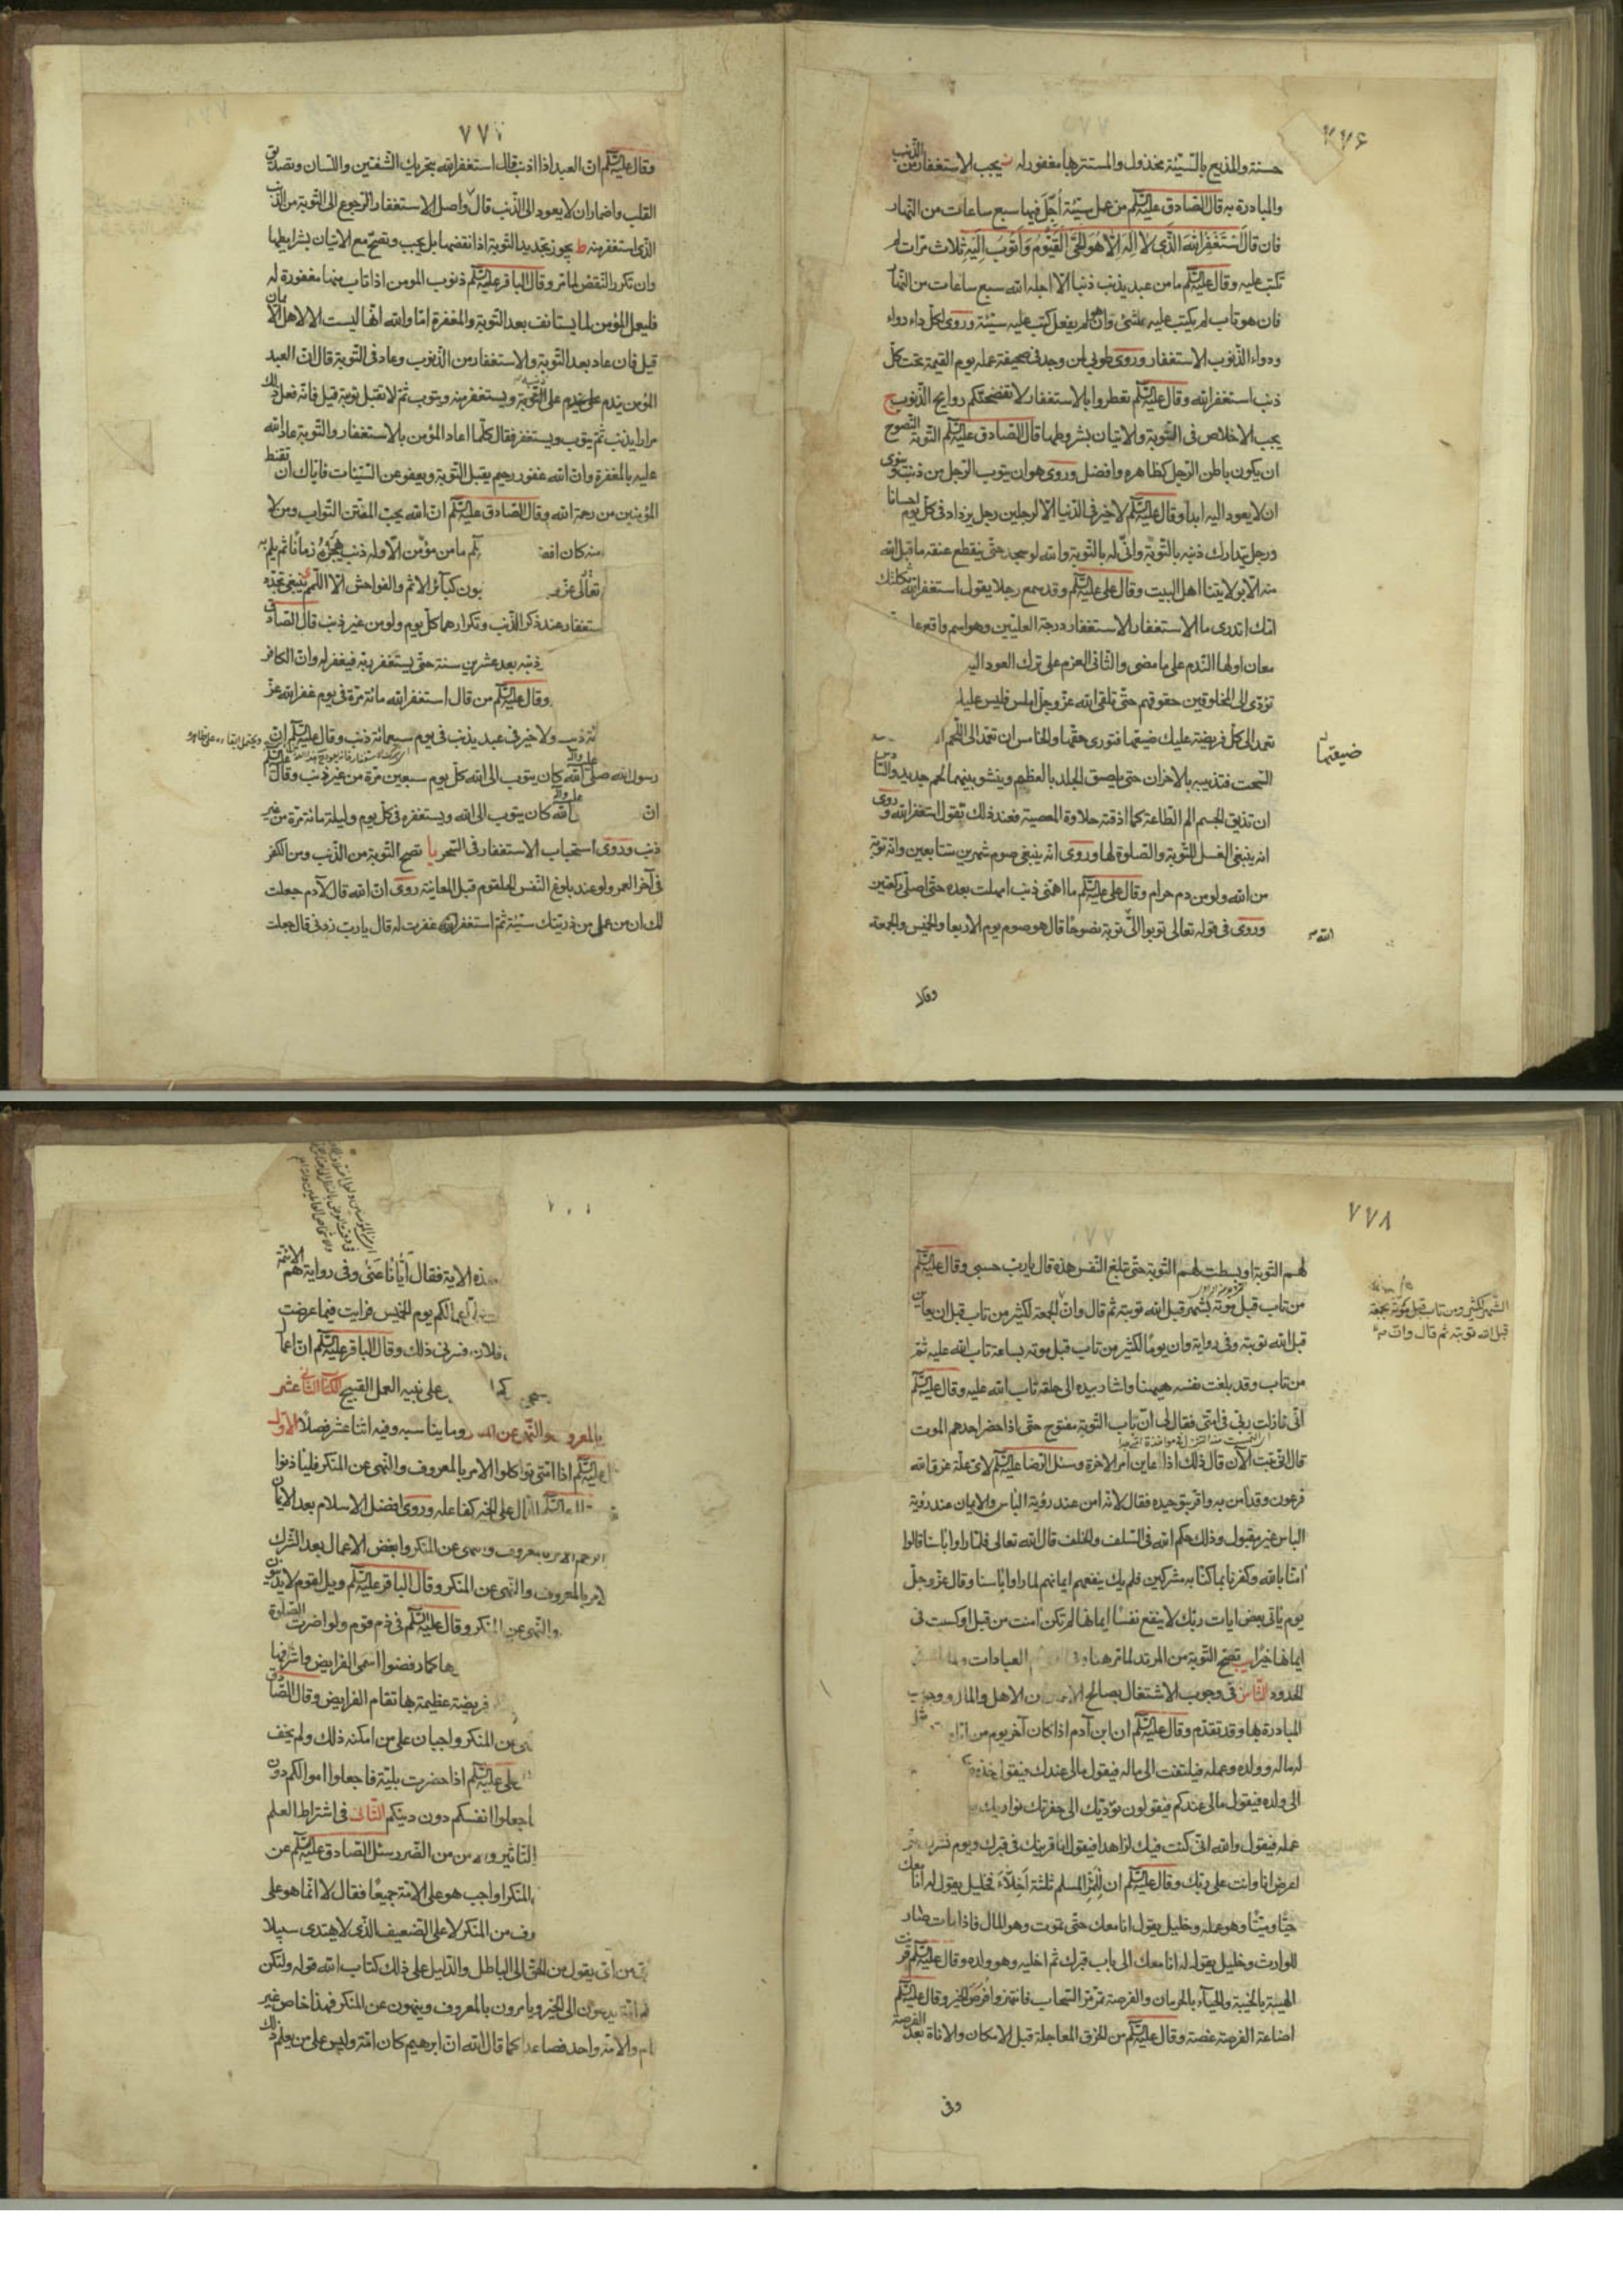 ٧٧٦
حسنة والمذيع بالسّيّئة مخذول والمستتر بها مغفور له يجب الاستغفار من الذنب
والمبادرة به قال الصّادق عليه السّلم من عمل سيّئة أُجّل فيها سبع ساعات من النّهار
فان قال اَسْتَغْفِرُ اللهَ الَّذِى لا اِلٰهَ اِلّا هُوَ الحَىُّ القَيُّومُ وَاَتُوبُ اِلَيْهِ ثلاث مرّات لم
تكتب عليه وقال عليه السّلم ما من عبد يذنب ذنبا الّا اجله الله سبع ساعات من النّهار
فان هو تاب لم يكتب عليه شئ وان هو لم يفعل كتب عليه سيّئة وروى لكلّ داء دواء
ودواء الذّنوب الاستغفار وروى طوبى لمن وجد فى صحيفة عمله يوم القيمة تحت كلّ
ذنب استغفر الله وقال عليه السّلم تعطروا بالاستغفار لا تفضحنّكم روايح الذّنوب ح
يجب الاخلاص فى التّوبة والاتيان بشروطها قال الصّادق عليه السّلم التّوبة النّصوح
ان يكون باطن الرّجل كظاهره وافضل وروى هو ان يتوب الرّجل من ذنب وينوى
ان لا يعود اليه ابدا وقال عليه السّلم لا خير فى الدّنيا الّا لرجلين رجل يزداد فى كلّ يوم احسانا
ورجل يتدارك ذنبه بالتّوبة وانّى له بالتّوبة والله لو سجد حتّى ينقطع عنقه ما قبل الله
منه الّا بولايتنا اهل البيت وقال على عليه السّلم وقد سمع رجلا يقول استغفر الله ثكلتك
امّك اتدرى ما الاستغفار الاستغفار درجة العليّين وهو اسم واقع على
معان اولها النّدم على ما مضى والثّانى العزم على ترك العود اليه
تؤدّى الى المخلوقين حقوقهم حتّى تلقى الله عزّ وجلّ املس فليس عليك
تعمد الى كلّ فريضة عليك ضيعتها فتودى حقّها والخامس ان تعمد الى اللّحم
ضيعتها
السّحت فتذيبه بالاحزان حتى يلصق الجلد بالعظم وينشو بينهما لحم جديد والسّادس
ان تذيق الجسم الم الطّاعة كما اذقته حلاوة المعصية فعند ذلك تقول استغفر الله وروى
انه ينبغى الغسل للتّوبة والصّلوة لها وروى انه ينبغى صوم شهرين متتابعين وانه توبة
من الله ولو من دم حرام وقال على عليه السّلم ما اهمّنى ذنب امهلت بعده حتّى اصلّى ركعتين
وروى فى قوله تعالى توبوا الى توبة نصوحًا قال هو صوم يوم الاربعا والخميس والجمعة
الله
وقال
٧٧٧
وقال عليه السّلم انّ العبد اذا اذنب قال استغفر الله بتحريك الشّفتين واللّسان وتصديق
القلب واضمار ان لا يعود الى الذّنب قال واصل الاستغفار الرّجوع الى التّوبة من الذّنب
الّذى استغفر منه ط يجوز تجديد التّوبة اذا نقضها بل يجب وتصحّ مع الاتيان بشرايطها
وان تكرر النّقض لما مر وقال الباقر عليه السّلم ذنوب المومن اذا تاب منها مغفورة له
فليعمل المؤمن لما يستانف بعد التّوبة والمغفرة امّا والله انّها ليست الا لاهل الايمان
قيل فان عاد بعد التّوبة والاستغفار من الذّنوب وعاد فى التّوبة قال انّ العبد
المؤمن يندم على ذنبه ويستغفر منه ويتوب ثمّ لا تقبل توبة قيل فانّه فعل ذلك
مرارا يذنب ثمّ يتوب ويستغفر فقال كلّما اعاد المؤمن بالاستغفار والتّوبة عاد الله
عليه بالمغفرة وانّ الله غفور رحيم يقبل التّوبة ويعفو عن السّيّئات فايّاك ان تقنط
المؤمنين من رحمة الله وقال الصّادق عليه السّلم انّ الله يحبّ المفتن التّواب ومن لا
منه كان افضل
ما من مؤمن الّا وله ذنب يهجره زمانًا ثم يلم به
تعالى عزّ
كبائر الاثم والفواحش الّا اللّمم ينبغى تجدّد
استغفار عند ذكر الذّنب وتكرارهما كلّ يوم ولو من غير ذنب قال الصّادق
ذنبه بعد عشرين سنة حتّى يستغفر ربّه فيغفر له وانّ الكافر
وقال عليه السّلم من قال استغفر الله مائة مرّة فى يوم غفر الله عزّ
ذنب ولا خير فى عبد يذنب فى يوم سبعمائة ذنب وقال عليه السّلم انّ
رسول الله صلّى الله عليه وآله كان يتوب الى الله كلّ يوم سبعين مرّة من غير ذنب وقال عليه السّلم
انّ
الله عليه وآله كان يتوب الى الله ويستغفره فى كلّ يوم وليلة مائة مرّة من غير
ذنب وروى استحباب الاستغفار فى السّحر يا تصح التّوبة من الذّنب ومن الكفر
فى آخر العمر ولو عند بلوغ النّفس الحلقوم قبل المعاينة روى انّ الله قال لآدم جعلت
لك ان من عمل من ذريّتك سيّئة ثمّ استغفر غفرت له قال يا ربّ زدنى قال جعلت
٧٧٨
لهم التّوبة او بسطت لهم التّوبة حتّى تبلغ النّفس هذه قال يا ربّ حسبى وقال عليه السّلم
من تاب قبل موته بشهر قبل الله توبته ثم قال وانّ الجمعة لكثير من تاب قبل ان يعاين
الشّهر لكثير ومن تاب قبل موته بجمعة
قبل الله توبته ثم قال وانّ
قبل الله توبته وفى رواية وان يومًا لكثير من تاب قبل موته بساعة تاب الله عليه ثمّ
من تاب وقد بلغت نفسه هيهنا واشار بيده الى حلقه تاب الله عليه وقال عليه السّلم
انّى نازلت ربّى فى امّتى فقال لى انّ باب التّوبة مفتوح حتّى اذا حضر احدهم الموت
قال انّى تبت الآن قال ذلك اذا عاين امر الاخرة وسئل الرّضا عليه السّلم لاىّ علّة غرق الله
فرعون وقد آمن به واقرّ بتوحيده فقال لانّه امن عند رؤية الباس والايمان عند رؤية
الباس غير مقبول وذلك حكم الله فى السّلف والخلف قال الله تعالى فلمّا راوا باسنا قالوا
امنّا بالله وكفرنا بما كنّا به مشركين فلم يك ينفعهم ايمانهم لما راوا باسنا وقال عزّ وجلّ
يوم ياتى بعض ايات ربّك لا ينفع نفسًا ايمانها لم تكن امنت من قبل او كسبت فى
ايمانها خيرًا يب تصحّ التّوبة من المرتد لما مر هنا وفى
العبادات ولما
الحدود الثّامن فى وجوب الاشتغال بصالح الاعمال عن الاهل والمال ووجوب
المبادرة بها وقد تقدّم وقال عليه السّلم ان ابن آدم اذا كان آخر يوم من
مثل
له ماله وولده وعمله فيلتفت الى ماله فيقول مالى عندك فيقول خذ
الى ولده فيقول مالى عندكم فيقولون نؤدّيك الى حفرتك نواريك
عمله فيقول والله انّى كنت فيك لزاهدا فيقول انا قرينك فى قبرك ويوم نشرك حتّى
اعرض انا وانت على ربّك وقال عليه السّلم ان للمرء المسلم ثلثة اخلّاء فخليل يقول له انا معك
حيّا وميّتًا وهو عمله وخليل يقول انا معك حتّى تموت وهو المال فاذا مات صار
للوارث وخليل يقول له انا معك الى باب قبرك ثم اخليه وهو ولده وقال عليه السّلم قرنت
الهيبة بالخيبة والحيآء بالحرمان والفرصة تمرّ مرّ السّحاب فانتهزوا فرص الخير وقال عليه السّلم
اضاعة الفرصة غصة وقال عليه السّلم من الخرق المعاجلة قبل الامكان والاناة بعد الفرصة
وفى
هذه الاية فقال ايّانا عنى وفى رواية هم الائمّة
اعمالكم يوم الخميس فرايت فيما عرضت
فلان فسرنى ذلك وقال الباقر عليه السّلم ان اعمال
على نبيه العمل القبيح الكتاب الثانى عشر
بالمعروف والنّهى عن المنكر وما يناسبه وفيه اثنا عشر فصلًا الاوّل
عليه السّلم اذا امّتى تواكلوا الامر بالمعروف والنّهى عن المنكر فلياذنوا
الدّال على الخير كفاعله وروى افضل الاسلام بعد الايمان
الرحم الامر بالمعروف والنهى عن المنكر وابغض الاعمال بعد الشّرك
الامر بالمعروف والنّهى عن المنكر وقال الباقر عليه السّلم ويل لقوم لا يدينون
والنّهى عن المنكر وقال عليه السّلم فى ذم قوم ولو اضرت الصّلوة
ها كما رفضوا اسمى الفرايض واشرفها
فريضة عظيمة بها تقام الفرايض وقال الصّادق
عن المنكر واجبان على من امكنه ذلك ولم يخف
على عليه السّلم اذا حضرت بليّة فاجعلوا اموالكم دون
اجعلوا انفسكم دون دينكم الثّانى فى اشتراط العلم
التاثير والامن من الضّرر سئل الصّادق عليه السّلم عن
المنكر اواجب هو على الامّة جميعًا فقال لا انّما هو على
من المنكر لا على الضّعيف الّذى لا يهتدى سبيلا
من اىّ يقول من الحق الى الباطل والدّليل على ذلك كتاب الله قوله ولتكن
امّة يدعون الى الخير ويامرون بالمعروف وينهون عن المنكر فهذا خاص غير
عام والامّة واحد فصاعدا كما قال الله انّ ابرهيم كان امّة وليس على من يعلم ذلك